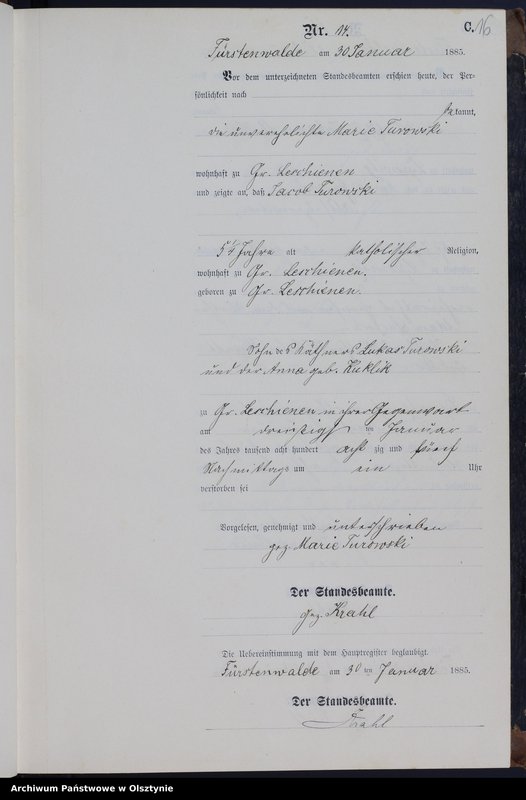 C. 16
Nr. 14.
Fürstenwalde am 30 Januar 1885.
Vor dem unterzeichneten Standesbeamten erschien heute, der Per-
sönlichkeit nach
bekannt,
die unverehelichte Marie Turowski
wohnhaft zu Gr. Leschienen
und zeigte an, daß Jacob Turowski
54 Jahre alt katholischer Religion,
wohnhaft zu Gr. Leschienen.
geboren zu Gr. Leschienen.
Sohn des Käthners Lukas Turowski
und der Anna geb. Kuklik
zu Gr. Leschienen in ihrer Gegenwart
am dreißigsten Januar
des Jahres tausend acht hundert achtzig und fünf
Nachmittags um ein Uhr
verstorben sei
Vorgelesen, genehmigt und unterschrieben
gez. Marie Turowski
Der Standesbeamte.
gez. Krahl
Die Uebereinstimmung mit dem Hauptregister beglaubigt.
Fürstenwalde am 30ten Januar 1885.
Der Standesbeamte.
Krahl
Archiwum Państwowe w Olsztynie